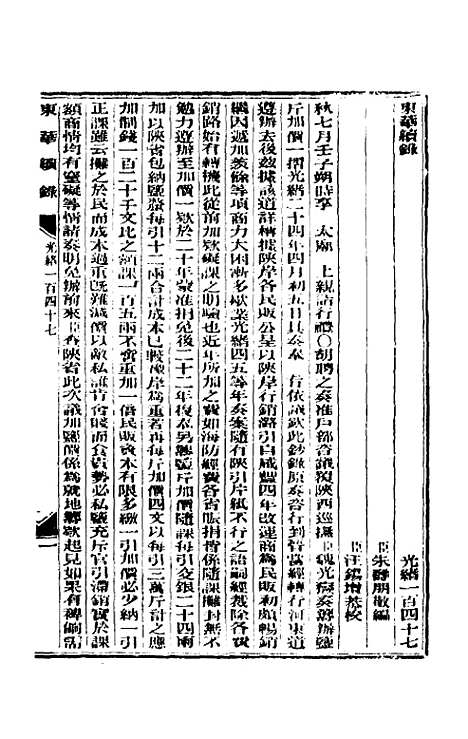 東華續錄
光緒一百四十七
臣朱壽朋敬編
臣汪錫增恭校
秋七月壬子朔時享　太廟　上親詣行禮〇胡聘之奏准戶部咨議覆陝西巡撫臣魏光燾奏籌辦鹽
斤加價一摺光緒二十四年四月初五日具奏奉　旨依議欽此鈔錄原奏咨行到晉當經轉行河東道
遵辦去後茲據該道詳稱據陝岸各民販公呈以陝岸行銷潞引自咸豐四年改運商為民販初頗暢銷
稱因遞加羨餘等項商力大困漸多歇業光緒四五等年奏案隨有陝引片紙不行之語嗣經裁除各費
銷路始有轉機此從前加款礙課之明驗也近年所加之費如海防經費各省賑捐皆係隨課攤封無不
勉力遵辦至加價一款於二十年蒙准捐免後二十二年復奉另籌鹽斤加價隨課每引交銀二十四兩
加以陝省包納鹽釐每引十二兩合計成本已較豫岸為重若再每斤加價四文以每引三萬斤計之應
加制錢一百二十千文比之額課一百五兩不啻重加一倍民販資本有限多繳一引加價必少納一引
正課雖云攤之於民而成本過重既難減價以敵私誰肯舍賤而食貴勢必私鹽充斥官引滯銷實於課
額商情均有窒礙等情請奏明免辦前來臣查陝省此次議加鹽價係為就地籌款起見如果有裨餉需
東華續錄　光緒一百四十七　一